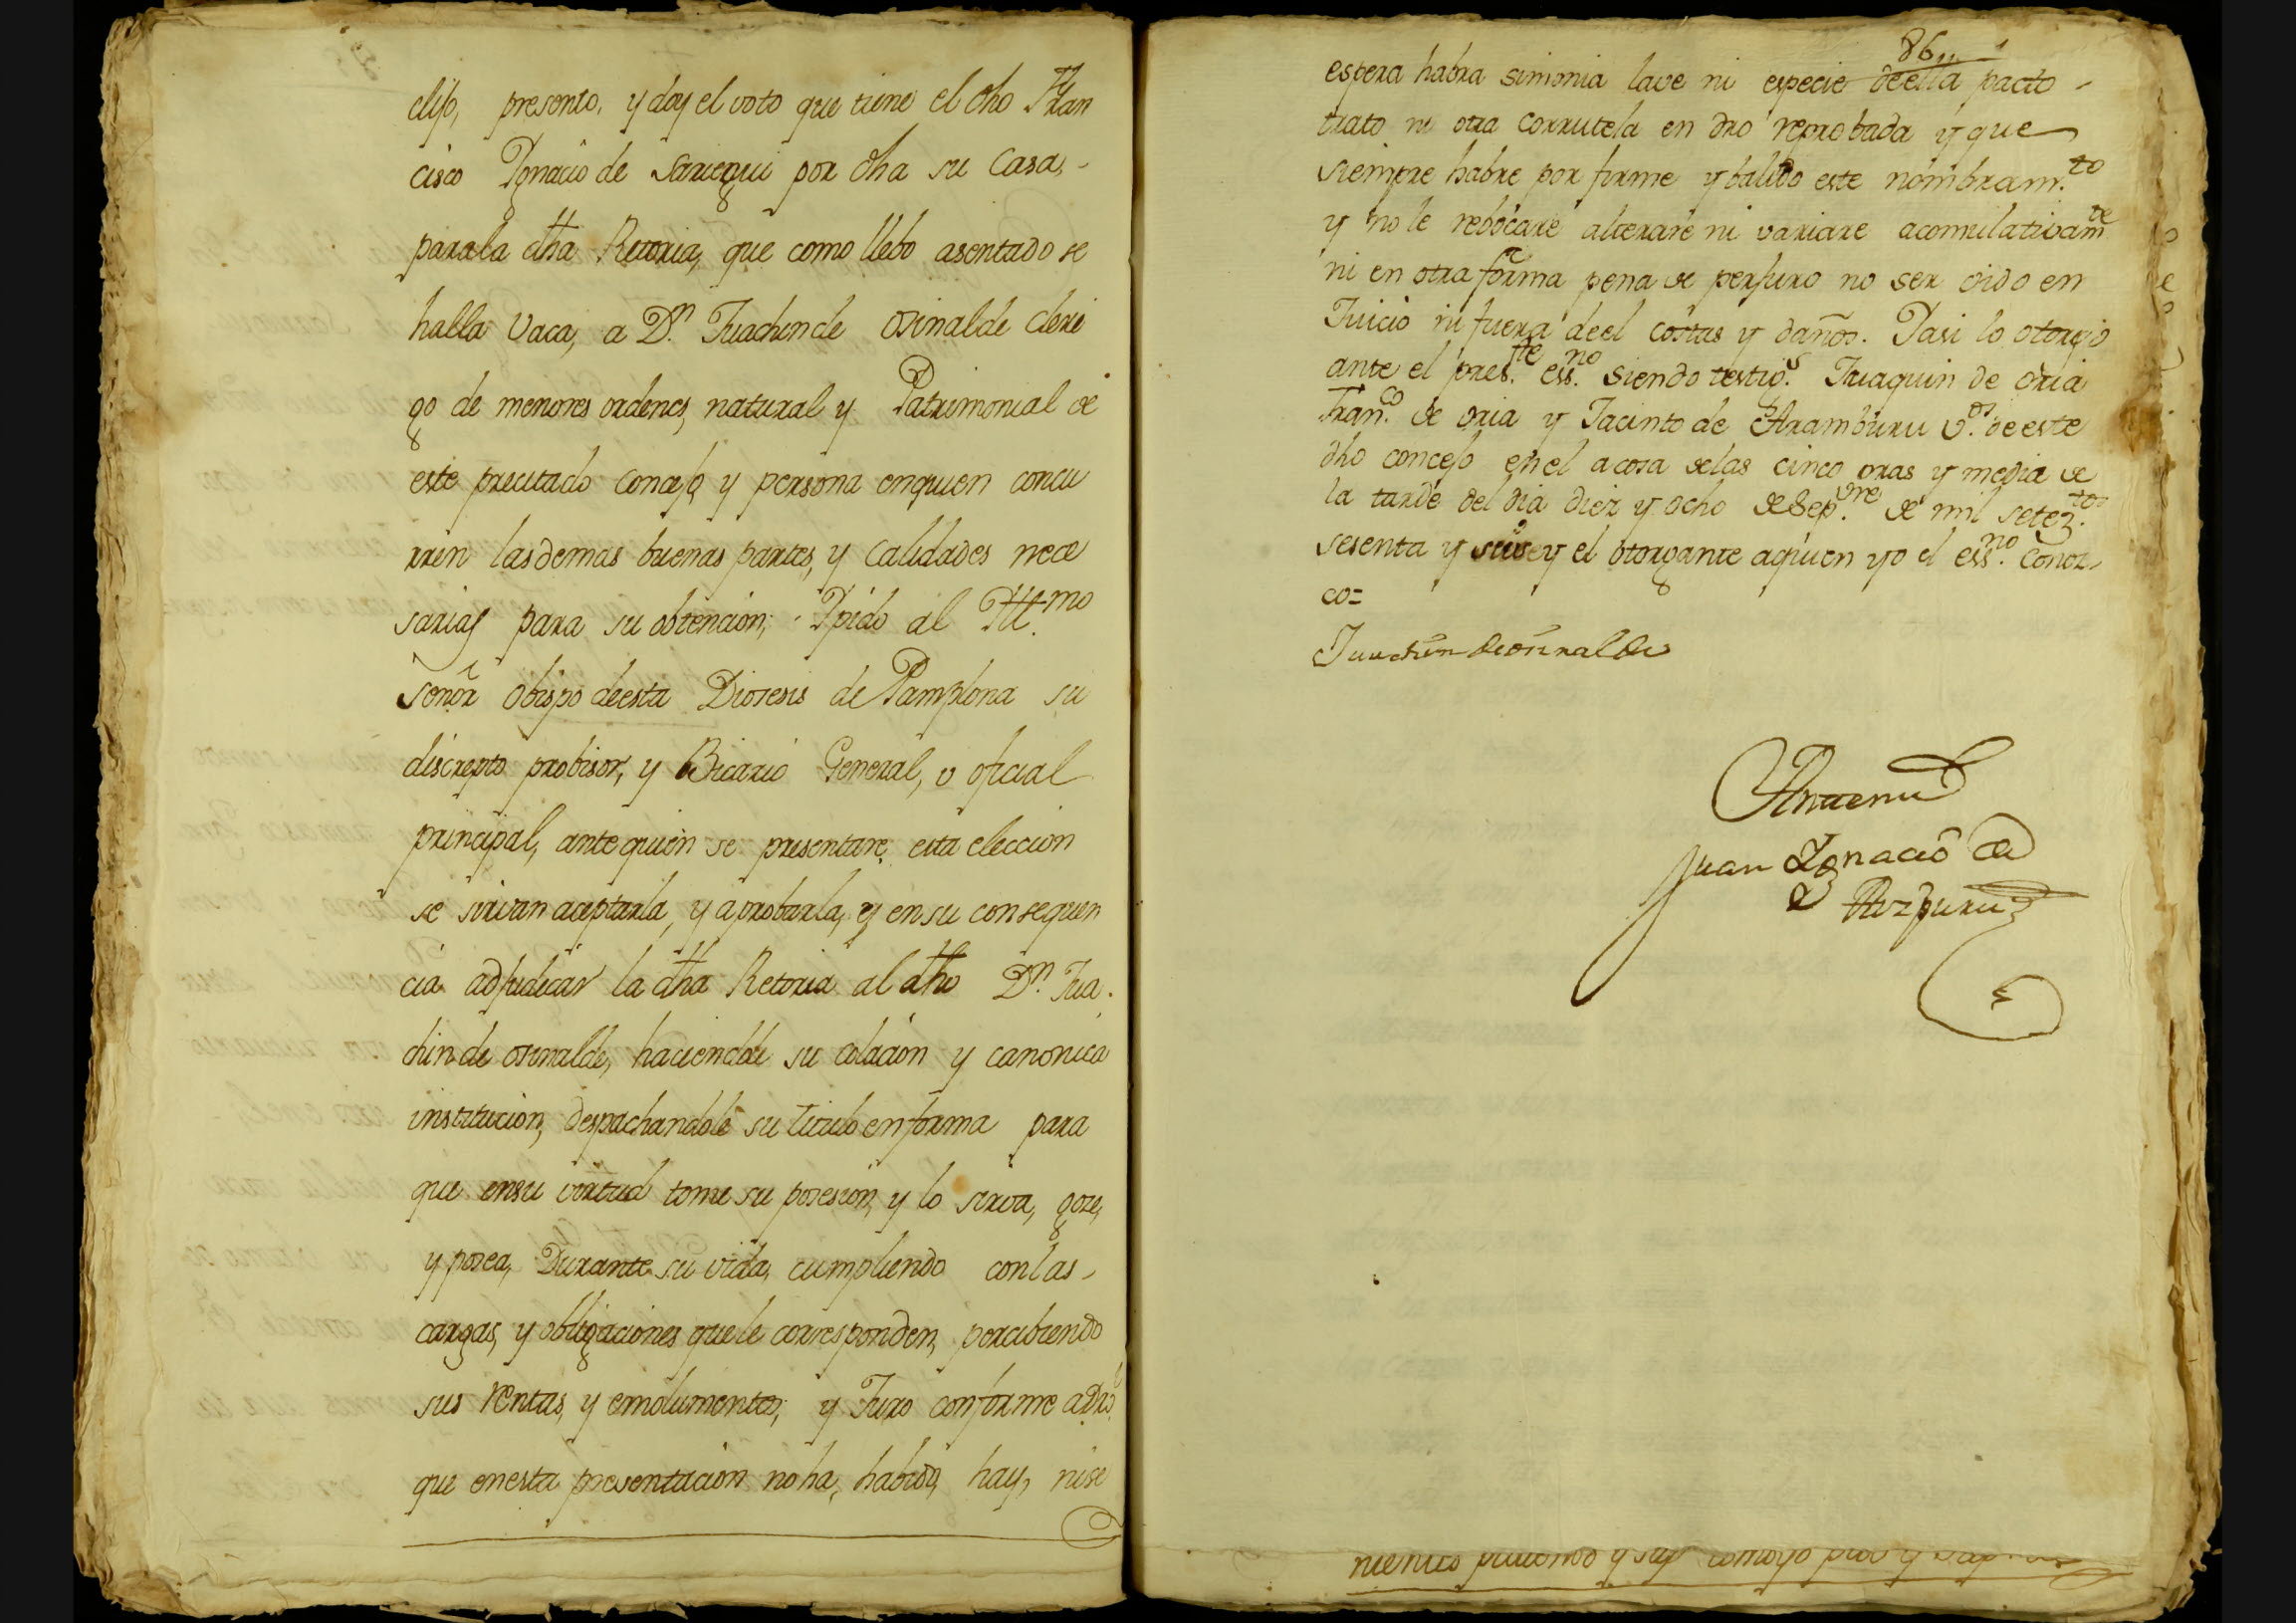 elijo, presento, y doy el voto que tiene el dho Fran
cisco Ygnacio de Sariegui por dha su Casa,
para la dha Retoria, que como llebo asentado se
halla Vaca, a Dn. Juachin de Osinalde Cleri
go de menores ordenes, natural y Patrimonial de
este precitado Concejo, y persona en quien concu
rren las demas buenas partes, y Calidades nece
sarias para su obtencion; Y pido al Ill.mo
Señor Obispo de esta Diosesis de Pamplona su
discrepto probisor, y Bicario General, v oficial
principal, ante quien se presentare esta eleccion
se sirvan aceptarla, y aprobarla, y en su consequen
cia adjudicar la dha Retoria al dho Dn. Jua
chin de osinalde, haciendole su colacion y canonica
institucion, despachandole su titulo en forma para
que en su virtud tome su posesion, y lo sirva, goze,
y posea, Durante su vida, cumpliendo con las
cargas, y obligaciones que le corresponden, percibiendo
sus rentas, y emolumentos; y Juro conforme a Dro.
que en esta presentacion no ha, habido, hay, ni se
86
espera habra simonia lave ni especie de ella pacto
trato ni otra corrutela en dro reprobada y que
siempre habre por firme y balido este nombram.to
y no le rebocare alterare ni variare acomulativam.te
ni en otra forma pena de perjuro no ser oido en
Juicio ni fuera de el costas y daños. Y asi lo otorgo
ante el pres.te ess.no siendo testigos Juaquin de Oria
Fran.co de oria y Jacinto de Aramburu v.os de este
dho concejo en el a cosa de las cinco oras y media de
la tarde del dia diez y ocho de Sep.vre de mil setez.tos
sesenta y seis y el otorgante aquien yo el ess.no Conoz
co=
Juachin de osinalde
Antemi
Juan Ygnacio de
Aizpuru